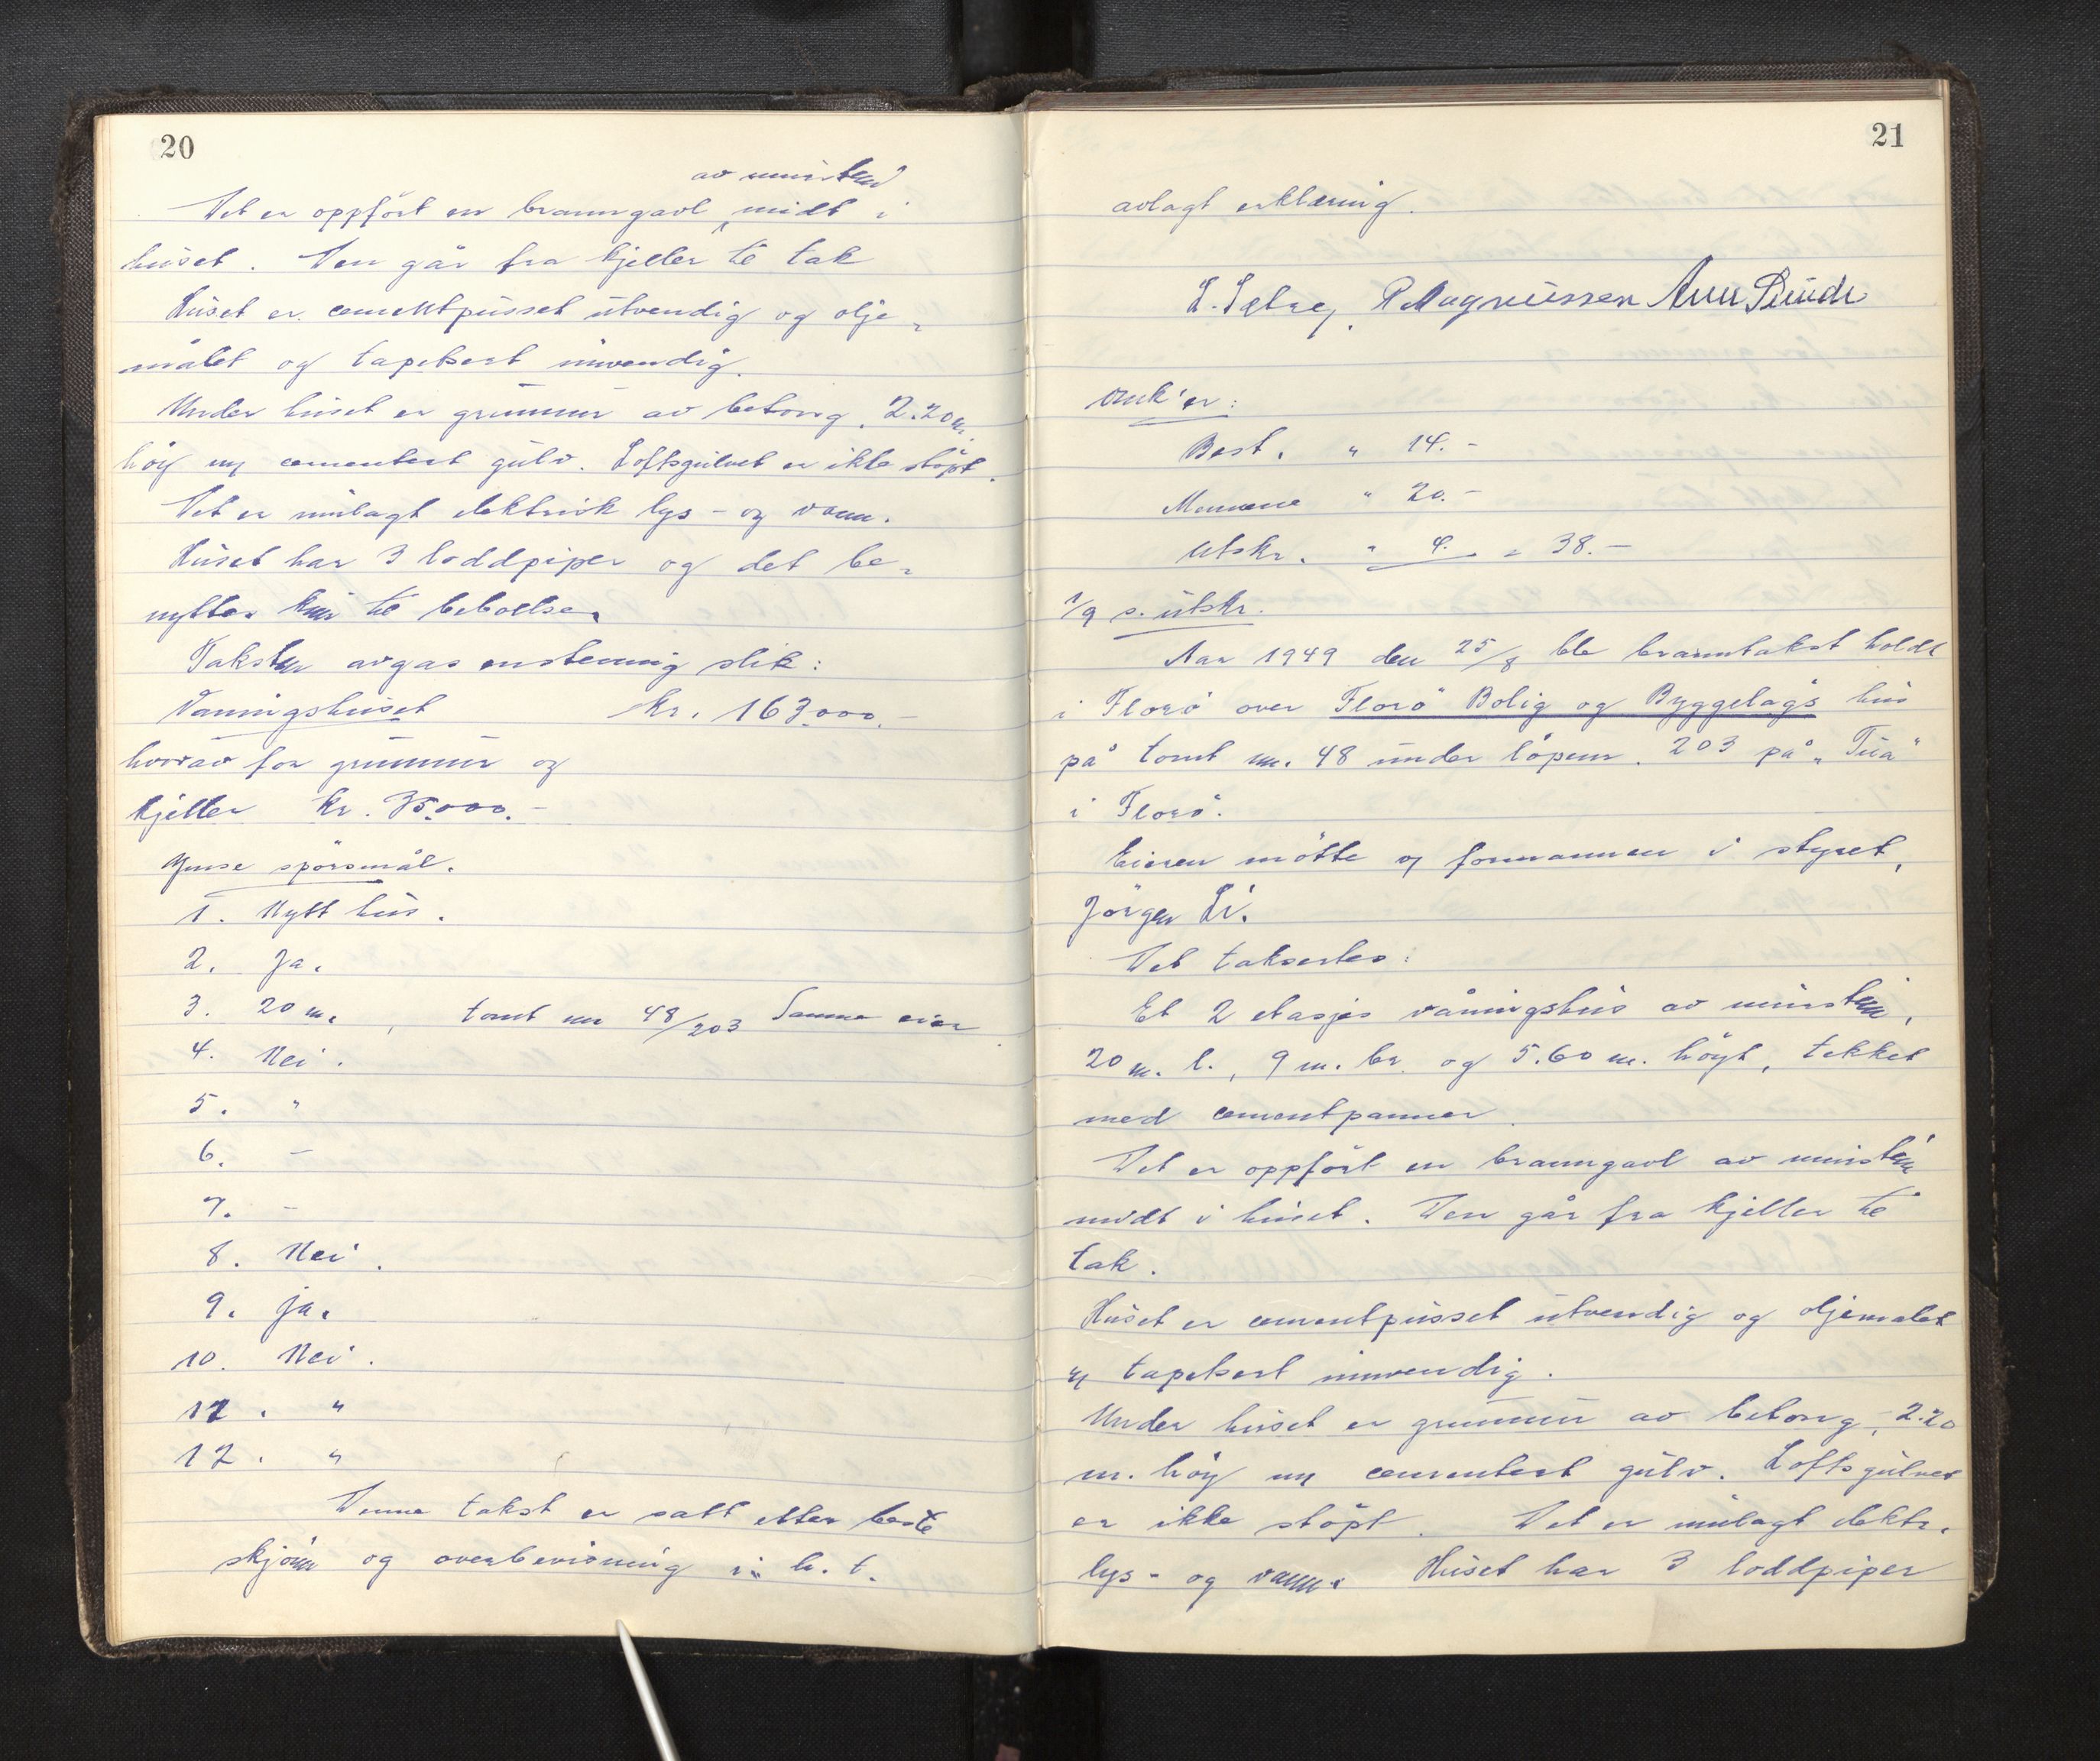 20
av murstein
Det er oppført en branngavl midt i
huset. Den går fra kjeller til tak
Huset er cementpusset utvendig og olje-
målet og tapetsert innvendig.
Under huset er grunnmur av betong, 2.20 m.
høy m/ cementert gulv. Loftsgulvet er ikke støpt.
Det er innlagt elektrisk lys- og vann.
Huset har 3 loddpiper og det be-
nyttes kun til beboelse.
Taksten avgas enstemmig slik:
Våningshuset kr. 163.000.-
hvorav for grunnmur og
kjeller kr. 35.000.-
Ymse spörsmål.
1. Nytt hus.
2. Ja.
3. 20 m., tomt nr 48/203 Samme eier
4. Nei.
5. "
6. -
7. -
8. Nei.
9. ja.
10. Nei.
11. "
12. "
Denne takst er satt etter beste
skjønn og overbevisning i h. t.
21
avlagt erklæring.
L. Sætre, P Magnussen
Omk'er:
Best. " 14.-
Mennene " 20.-
Utskr. " 4. = 38.-
1/9 s. utskr.
Aar 1949 den 25/8 ble branntakst holdt
i Florö over Florö Bolig og Byggelags hus
på tomt nr. 48 under löpenr. 203 på "Tua"
i Florö.
Eieren mötte v/ formannen i styret,
Jörgen Li.
Det takseres:
Et 2 etasjes våningshus av murstein,
20 m. l., 9 m. br. og 5.60 m. höyt, tekket
med cementpanner.
Det er oppfört en branngavl av murstein
midt i huset. Den går fra kjeller til
tak.
Huset er cementpusset utvendig og oljemalet
og tapetsert innvendig.
Under huset er grunnmur av betong, 2.20
m. höy m/ cementert gulv. Loftsgulvet
er ikke stöpt. Det er innlagt elektr.
lys- og vann. Huset har 3 loddpiper